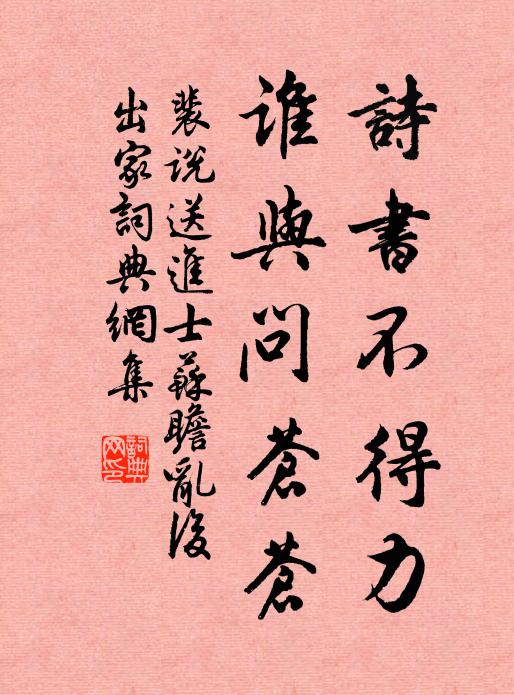 詩書不得力
誰與問蒼蒼
裴説送進士蘇瞻亂後
出家詞典網集
詞典網印